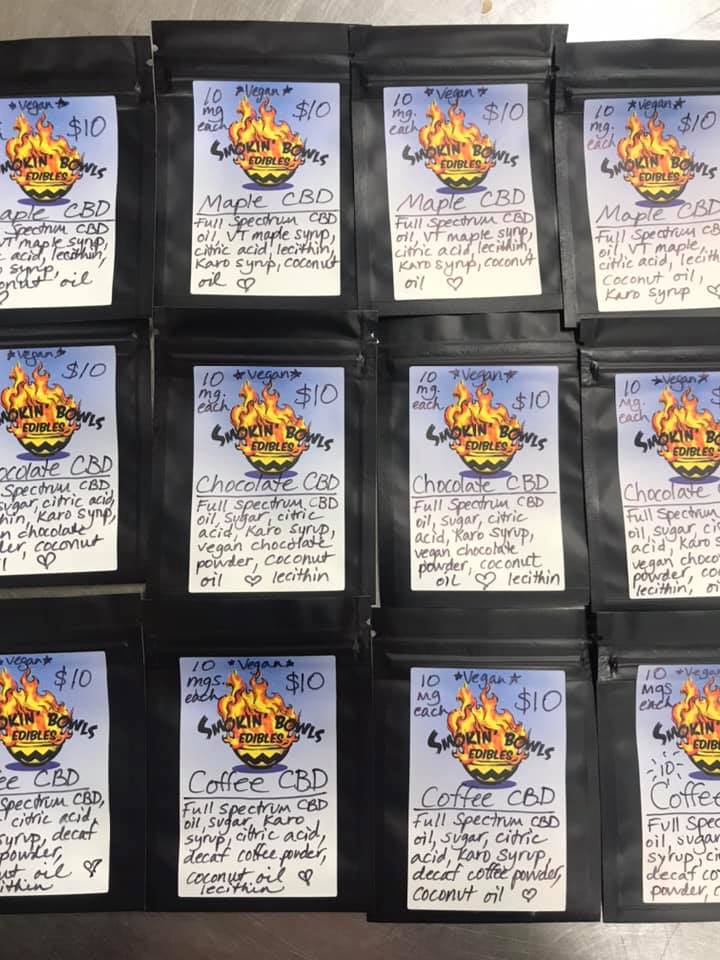 *Vegan*
$10
SMOKIN' BOWLS
EDIBLES
Maple CBD
Spectrum CBD
VT maple syrup,
acid, lecithin,
syrup,
oil
10 *Vegan*
mg $10
each
SMOKIN' BOWLS
EDIBLES
Maple CBD
Full Spectrum CBD
oil, VT maple syrup,
citric acid, lecithin,
Karo syrup, coconut
oil ♡
10 *Vegan*
mg. $10
each
SMOKIN' BOWLS
EDIBLES
Maple CBD
Full Spectrum CBD
oil, VT maple syrup,
citric acid, lecithin,
Karo syrup, coconut
oil ♡
10 *Vegan*
mg. $10
each
SMOKIN' BOWLS
EDIBLES
Maple CBD
Full Spectrum CBD
oil, VT maple,
citric acid, lecith
Coconut oil,
Karo syrup ♡
*Vegan*
$10
SMOKIN' BOWLS
EDIBLES
ocolate CBD
Spectrum CBD
sugar, citric acid,
Karo syrup,
chocolate
coconut
♡
10 *Vegan*
mg. $10
each
SMOKIN' BOWLS
EDIBLES
Chocolate CBD
Full Spectrum CBD
oil, sugar, citric
acid, Karo syrup,
vegan chocolate
powder, coconut
oil ♡ lecithin
10 *Vegan*
mg. $10
each
SMOKIN' BOWLS
EDIBLES
Chocolate CBD
Full Spectrum CBD
oil, sugar, citric
acid, Karo syrup,
vegan chocolate
powder, coconut
oil ♡ lecithin
10 *Vegan*
mg.
each
SMOKIN' BO
EDIBLES
Chocolate
Full Spectrum
oil, sugar, ci
acid, Karo s
vegan choco
powder, co
lecithin, oi
*Vegan*
$10
SMOKIN' BOWLS
EDIBLES
ee CBD
Spectrum CBD,
citric acid,
syrup, decaf
powder,
oil ♡
10 *Vegan*
mgs. $10
each
SMOKIN' BOWLS
EDIBLES
Coffee CBD
Full Spectrum CBD
oil, sugar, Karo
syrup, citric acid,
decaf coffee powder,
coconut oil ♡
lecithin
10 *Vegan*
mg $10
each
SMOKIN' BOWLS
EDIBLES
Coffee CBD
Full Spectrum CBD
oil, sugar, citric
acid, Karo syrup,
decaf coffee powder,
coconut oil ♡
10 *Vega
mgs
each
SMOKIN' B
EDIBLE
10
Coffee
Full Spec
oil, sugar
syrup, ci
decaf co
powder, c